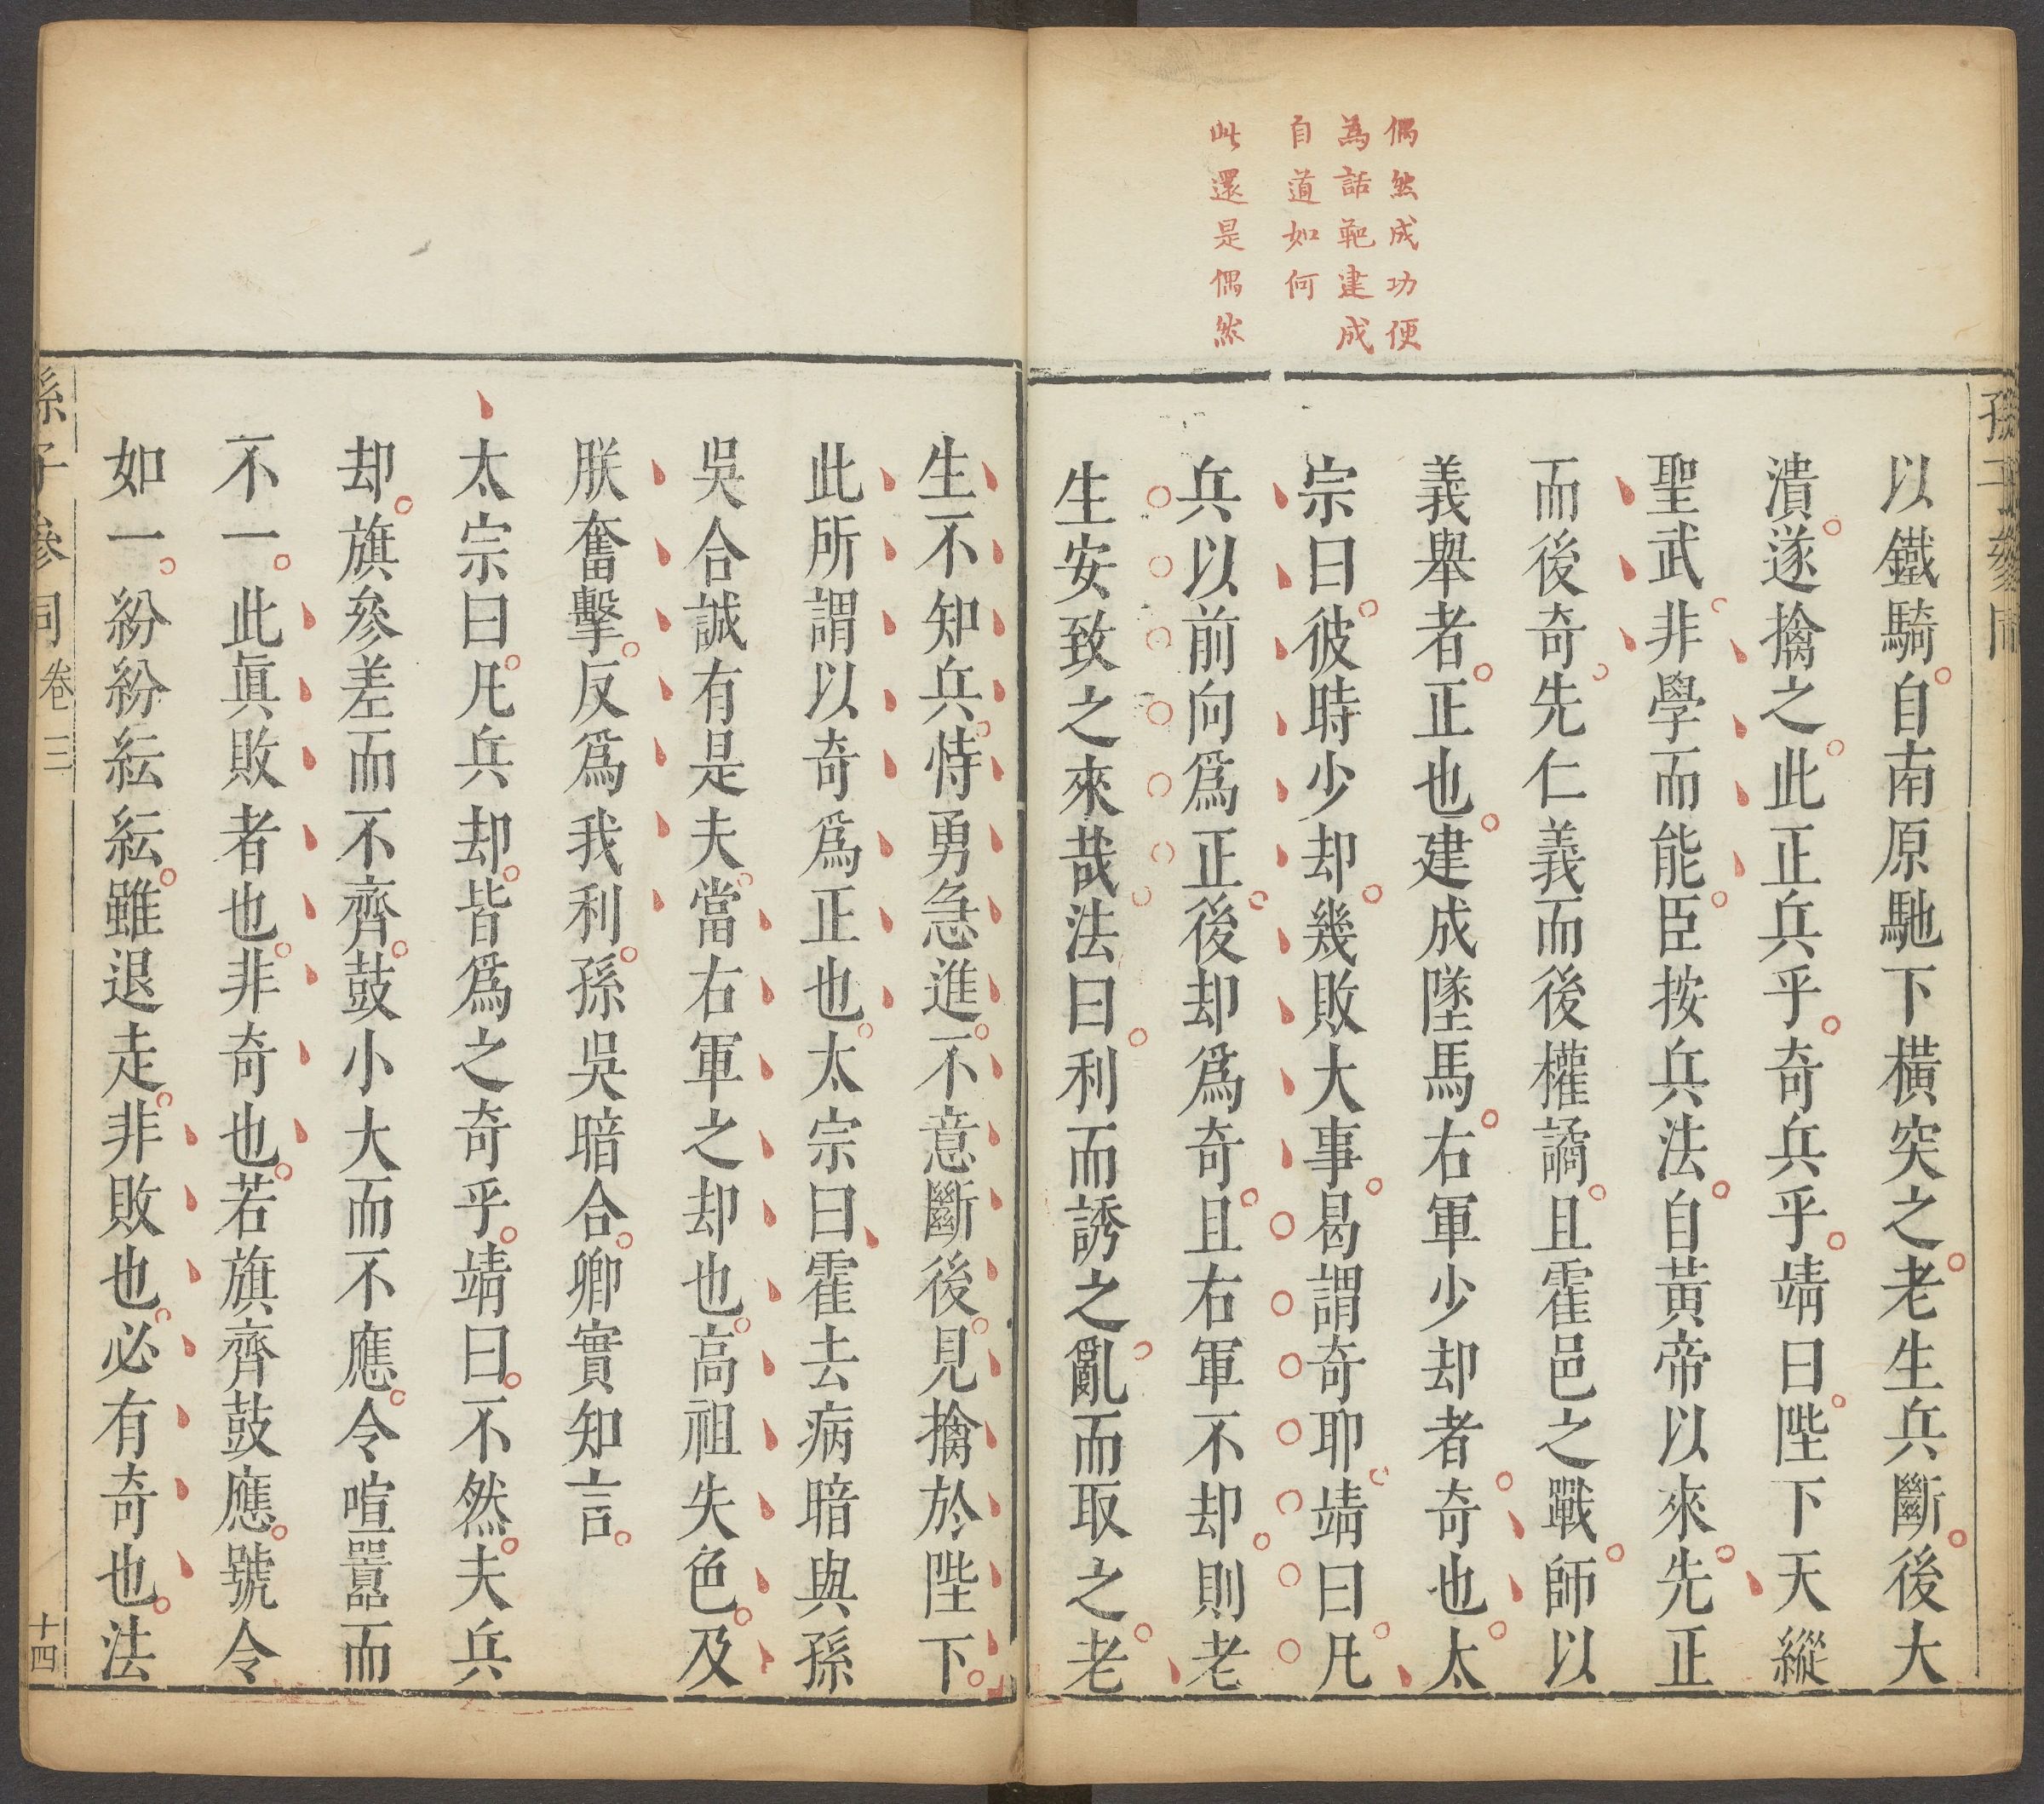 孫子參同
偶然成功便
為話靶建成
自道如何
此還是偶然
以鐵騎自南原馳下橫突之老生兵斷後大
潰遂擒之此正兵乎奇兵乎靖曰陛下天縱
聖武非學而能臣按兵法自黃帝以來先正
而後奇先仁義而後權譎且霍邑之戰師以
義舉者正也建成墜馬右軍少却者奇也太
宗曰彼時少却幾敗大事曷謂奇耶靖曰凡
兵以前向爲正後却爲奇且右軍不却則老
生安致之來哉法曰利而誘之亂而取之老
生不知兵恃勇急進不意斷後見擒於陛下
此所謂以奇爲正也太宗曰霍去病暗與孫
吳合誠有是夫當右軍之却也高祖失色及
朕奮擊反爲我利孫吳暗合卿實知言
太宗曰凡兵却皆爲之奇乎靖曰不然夫兵
却旗參差而不齊鼓小大而不應令喧囂而
不一此眞敗者也非奇也若旗齊鼓應號令
如一紛紛紜紜雖退走非敗也必有奇也法
孫子參同 卷三 十四